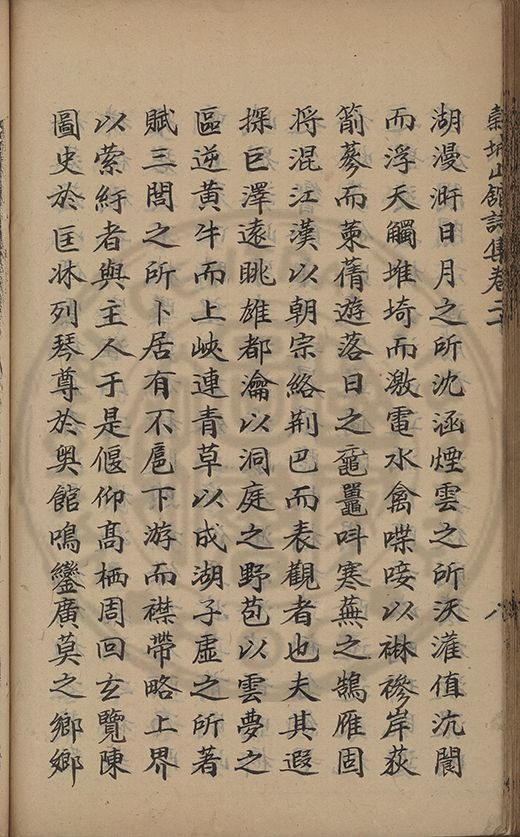 棠城山館詩集卷二十
八
湖漫汧日月之所沈涵煙雲之所沃灌值沆閬
而浮天觸堆埼而激電水禽喋唼以褵褷岸荻
箾蔘而萰蒨遊落日之黿鼉呌寒蕪之鵠雁固
将混江漢以朝宗絡荆巴而表觀者也夫其遐
探巨澤遠眺雄都瀹以洞庭之野苞以雲夢之
區逆黄牛而上峽連青草以成湖子虛之所著
賦三閭之所卜居有不扈下游而襟帶略上界
以縈紆者與主人于是偃仰髙栖周回玄覽陳
圖史於匡牀列琴尊於奥館鳴鑾廣莫之鄉鄉